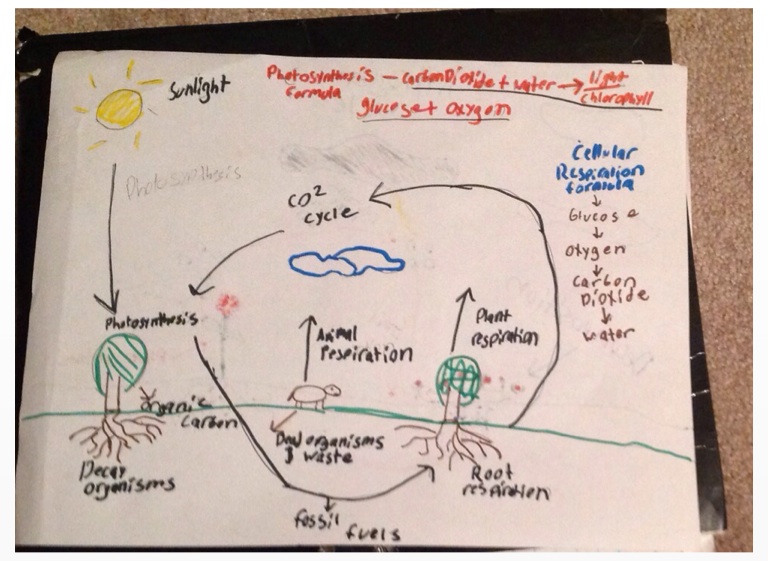 Sunlight
Photosynthesis – carbon Dioxide + water → light
formula
chlorophyll
glucose + oxygen
Photosynthesis
Cellular
Respiration
formula
↓
Glucose
↓
oxygen
↓
Carbon
Dioxide
↓
water
CO²
cycle
Photosynthesis
Animal
Respiration
Plant
respiration
organic
Carbon
Dead organisms
& waste
Decay
organisms
Root
respiration
fossil
fuels